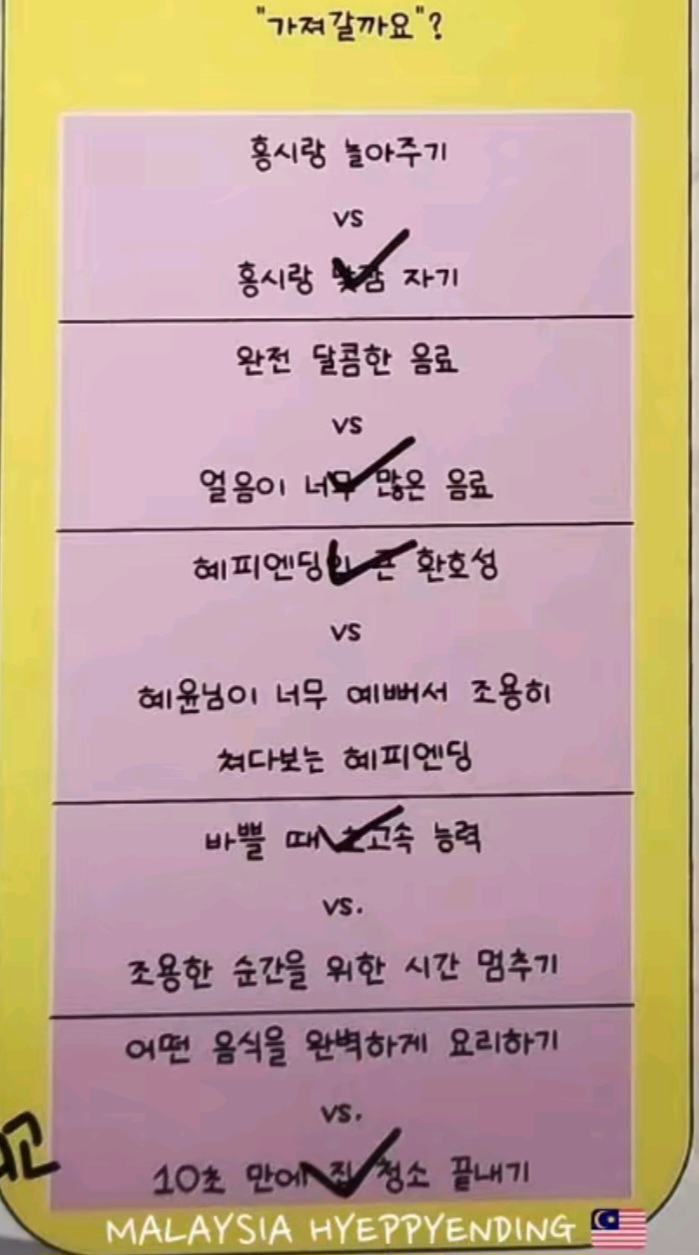 "가져갈까요"?
홍시랑 놀아주기
vs
홍시랑 낮잠 자기
완전 달콤한 음료
vs
얼음이 너무 많은 음료
혜피엔딩의 큰 환호성
vs
혜윤님이 너무 예뻐서 조용히
쳐다보는 혜피엔딩
바쁠 때 초고속 능력
vs.
조용한 순간을 위한 시간 멈추기
어떤 음식을 완벽하게 요리하기
vs.
10초 만에 집 청소 끝내기
고
MALAYSIA HYEPPYENDING 🇲🇾